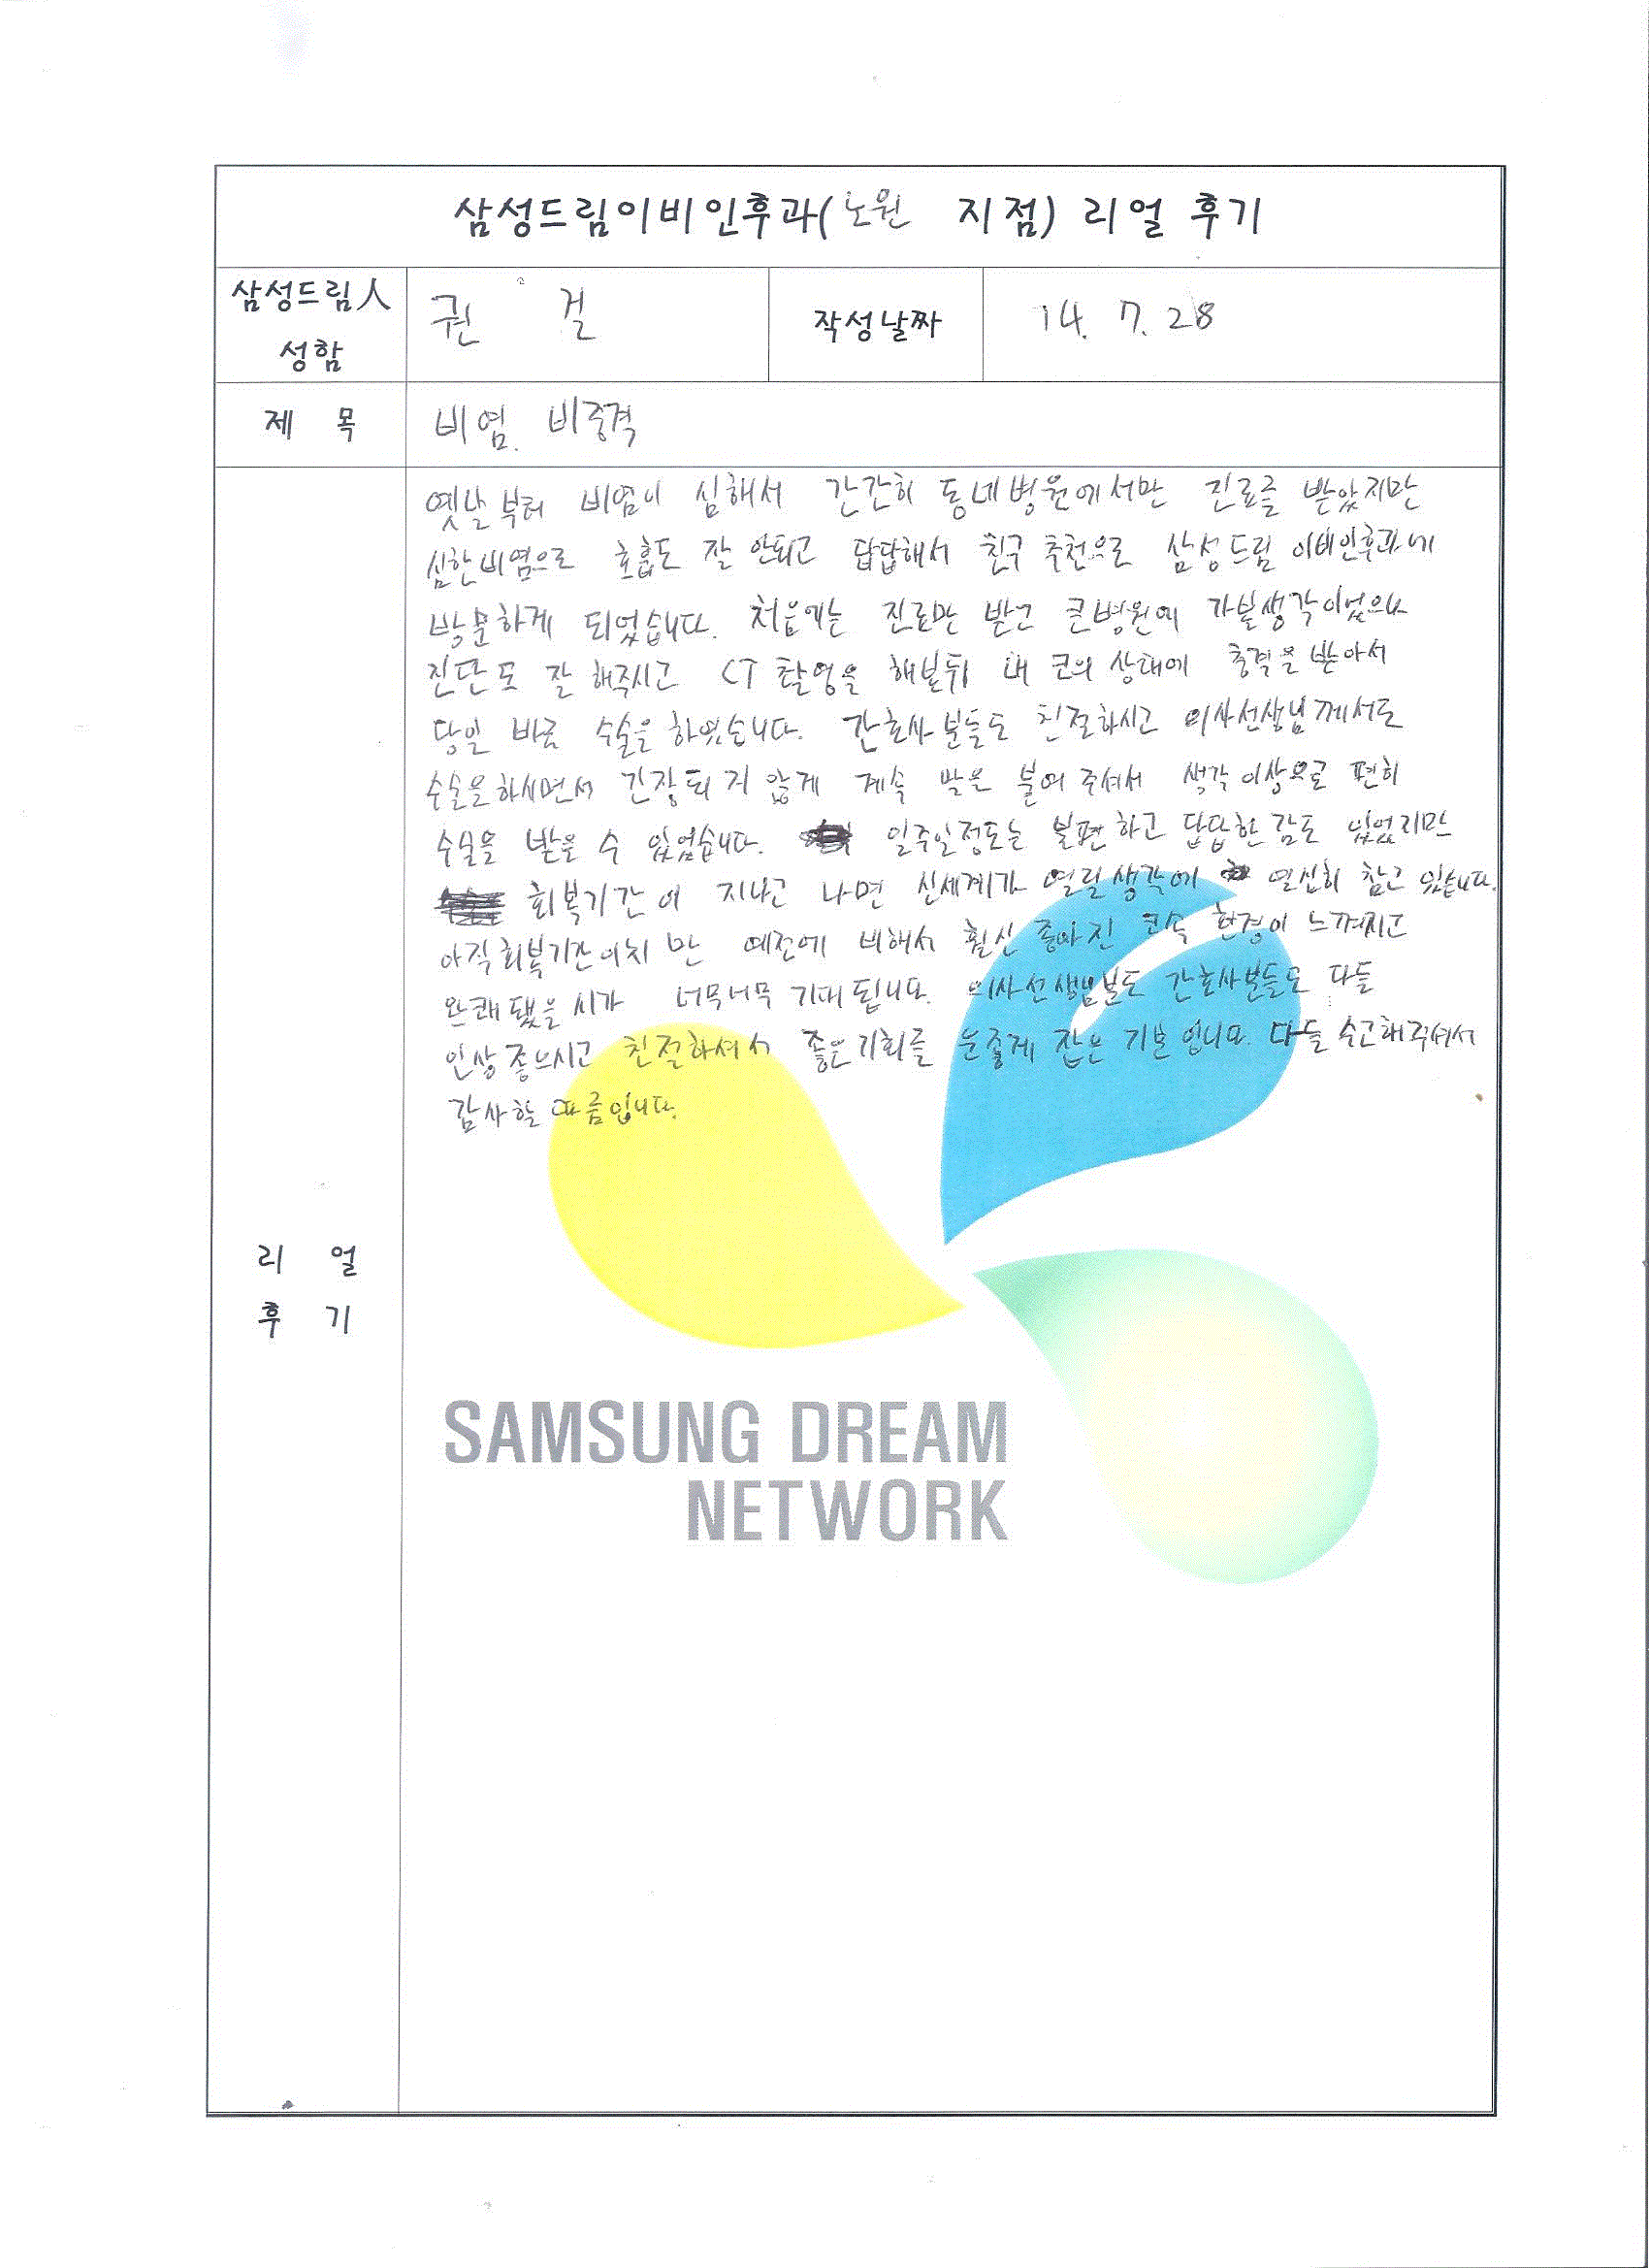 삼성드림이비인후과(노원 지점) 리얼 후기
삼성드림人
성함
권 ○ 걸
작성날짜
14. 7. 28
제 목
비염. 비중격
옛날부터 비염이 심해서 간간히 동네병원에서만 진료를 받았지만
심한비염으로 호흡도 잘 안되고 답답해서 친구 추천으로 삼성드림 이비인후과에
방문하게 되었습니다. 처음에는 진료만 받고 큰병원에 가볼생각이었으나
진단도 잘 해주시고 CT 촬영을 해본뒤 내 코의 상태에 충격을 받아서
당일 바로 수술을 하였습니다. 간호사분들도 친절하시고 의사선생님께서도
수술을하시면서 긴장되지 않게 계속 말은 붙여 주셔서 생각 이상으로 편히
수술을 받을 수 있었습니다. 일주일정도는 불편하고 답답한 감도 있었지만
회복기간이 지나고 나면 신세계가 열릴생각에 열심히 참고 있습니다.
아직회복기간이지만 예전에 비해서 훨신 좋아진 코속 환경이 느껴지고
완쾌됐을 시가 너무너무 기대됩니다. 의사선생님분도 간호사분들도 다들
인상좋으시고 친절하셔서 좋은기회를 운좋게 잡은 기분입니다. 다들 수고해주셔서
감사할 따름입니다.
리 얼
후 기
SAMSUNG DREAM
NETWORK